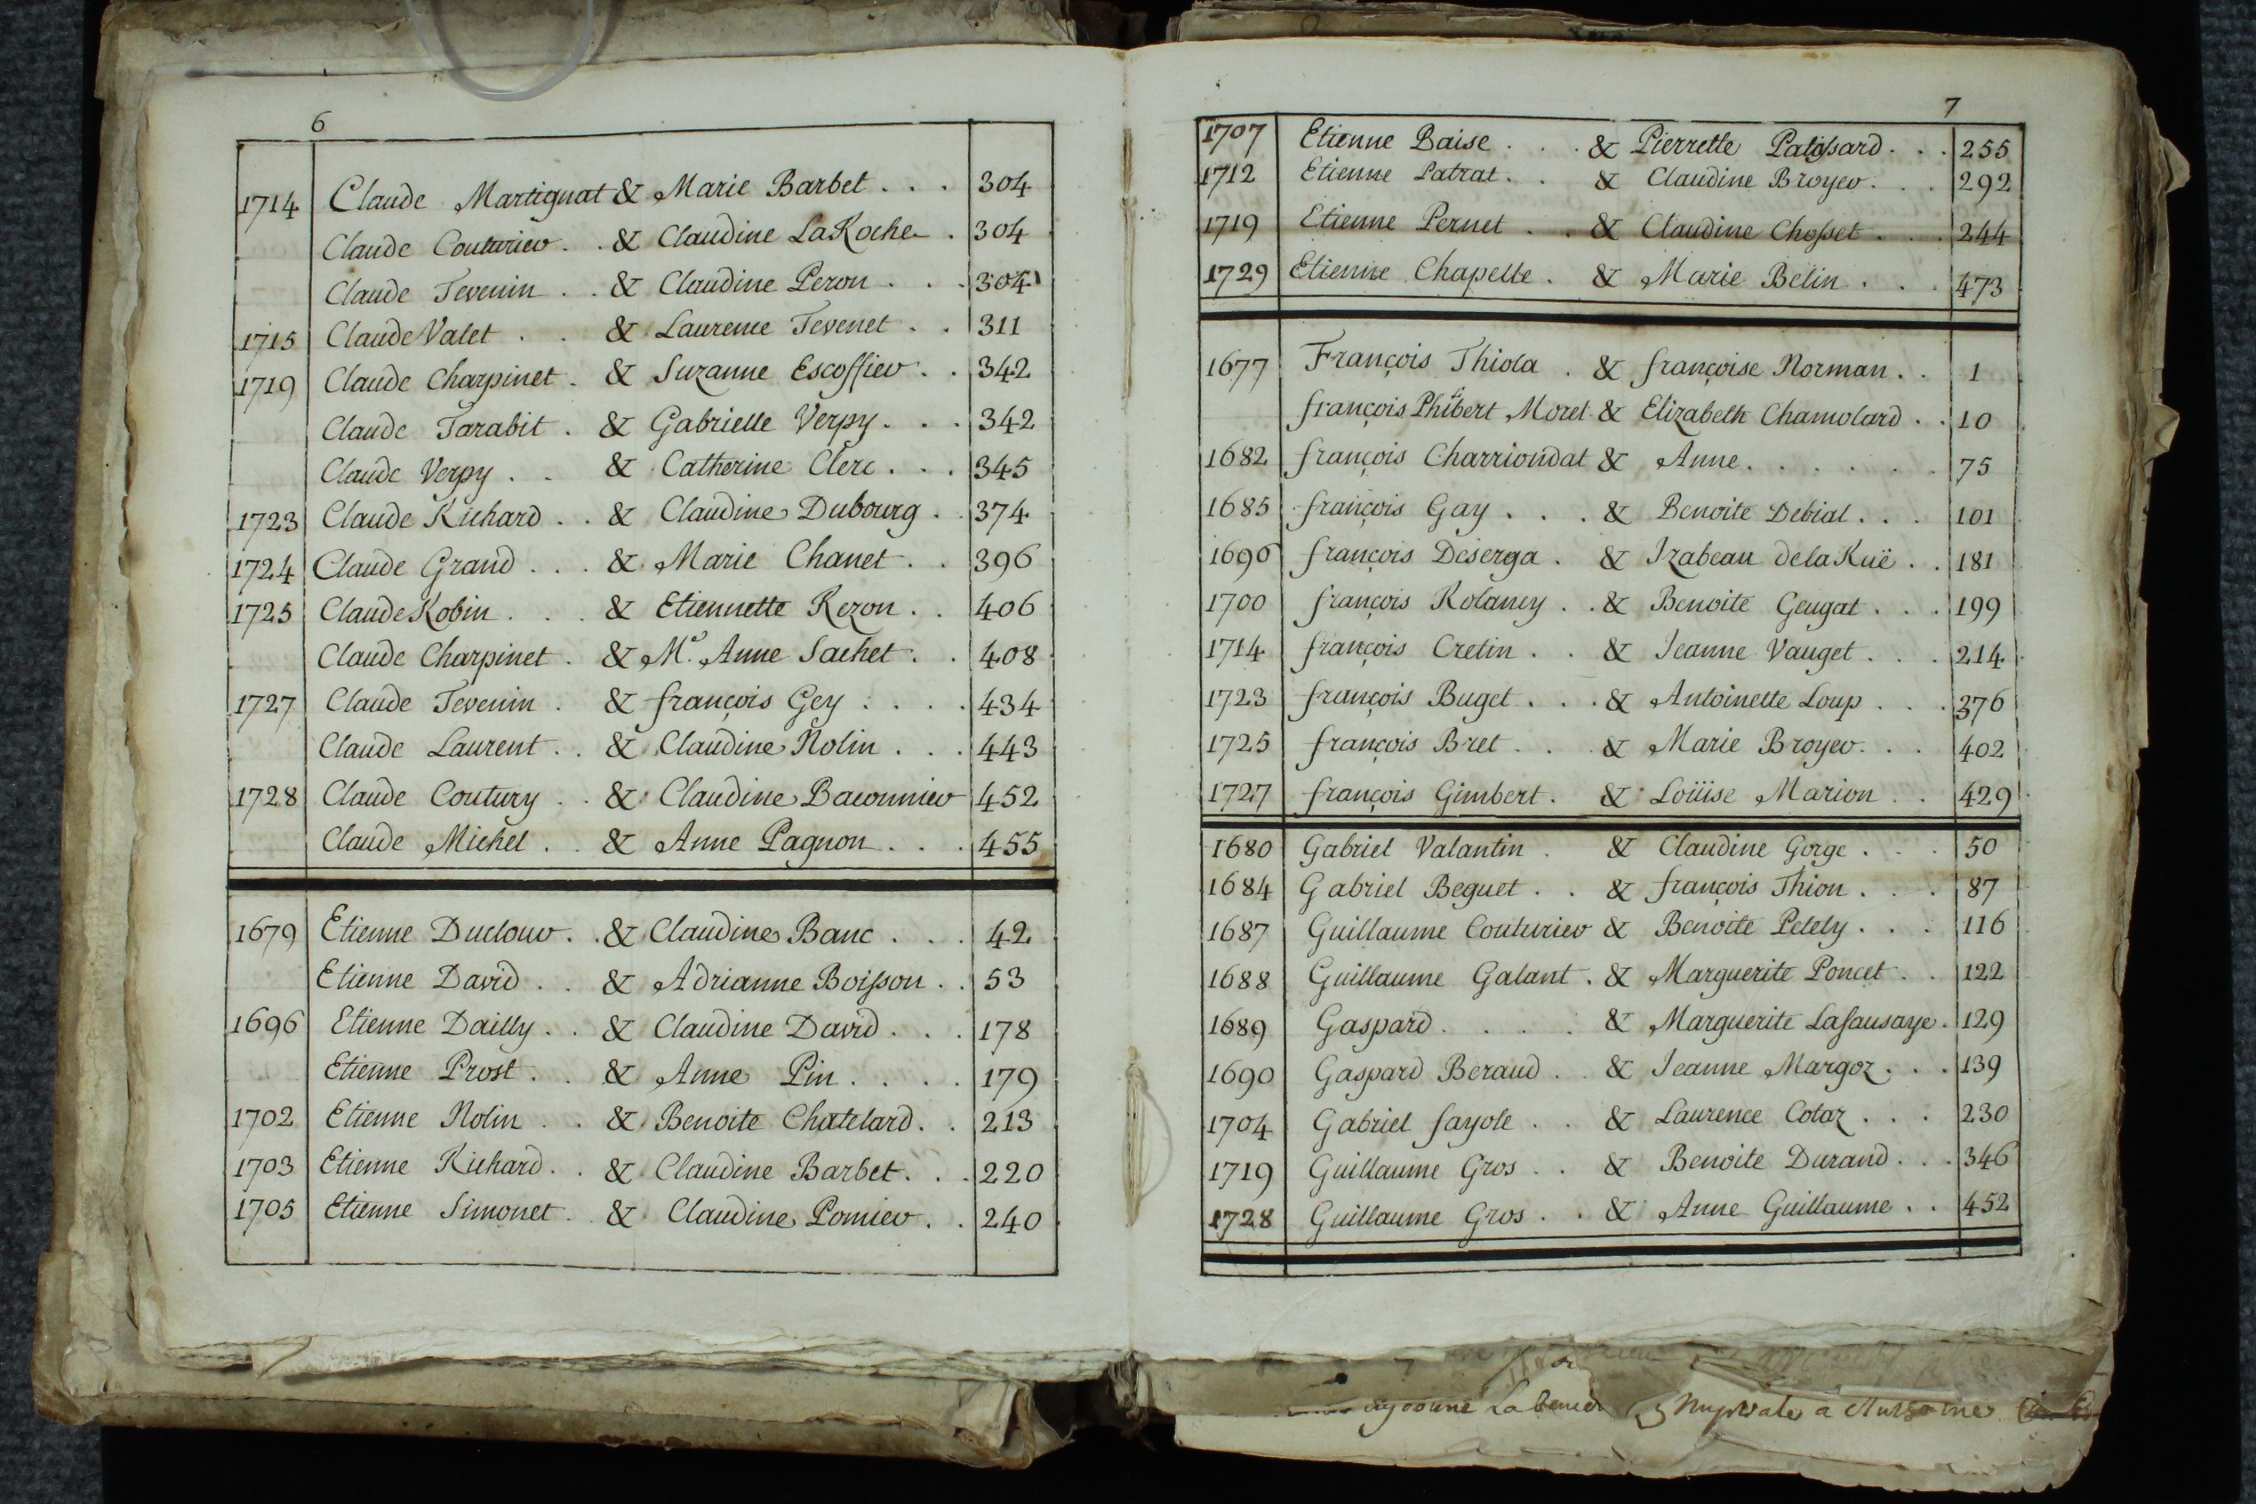 6
1714 Claude Martignat & Marie Barbet . . . 304
Claude Couturier . . & Claudine LaRoche . 304
Claude Tevenin . . & Claudine Peron . . . 304
1715 Claude Valet . . & Laurence Tevenet . . 311
1719 Claude Charpinet . & Suzanne Escoffier . . 342
Claude Tarabit . & Gabrielle Verpy . . . 342
Claude Verpy . . & Catherine Clerc . . . 345
1723 Claude Richard . . & Claudine Dubourg . . 374
1724 Claude Grand . . . & Marie Chanet . . 396
1725 Claude Robin . . . & Etiennette Rezon . . 406
Claude Charpinet . & M.e Anne Sachet . . 408
1727 Claude Tevenin . & françois Gey . . . . 434
Claude Laurent . . & Claudine Nolin . . . 443
1728 Claude Coutury . . & Claudine Baconnier 452
Claude Michel . . & Anne Pagnon . . . 455
1679 Etienne Duclour . . & Claudine Banc . . . 42
Etienne David . . & Adrianne Boisson . . 53
1696 Etienne Dailly . . & Claudine David . . . 178
Etienne Prost . . & Anne Pin . . . . 179
1702 Etienne Nolin . . & Benoite Chatelard . . 213
1703 Etienne Richard . . & Claudine Barbet . . . 220
1705 Etienne Simonet . . & Claudine Pomier . . 240
7
1707 Etienne Baise . . . & Pierrette Patissard . . . 255
1712 Etienne Patrat . . & Claudine Broyer . . . 292
1719 Etienne Pernet . . & Claudine Chosset . . . 244
1729 Etienne Chapelle . & Marie Belin . . . 473
1677 François Thiola . & françoise Norman . . 1
françois Phibert Moret & Elizabeth Chamolard . . 10
1682 françois Charriondat & Anne . . . . . . 75
1685 françois Gay . . . & Benoite Debiat . . . 101
1696 françois Deserga . & Izabeau delaRuë . . 181
1700 françois Rolancy . . & Benoite Geugat . . . 199
1714 françois Cretin . . & Jeanne Vauget . . . 214
1723 françois Buget . . . & Antoinette Loup . . . 376
1725 françois Bret . . . & Marie Broyer . . . 402
1727 françois Gimbert . & Loüise Marion . . 429
1680 Gabriel Valantin . & Claudine Gorge . . . 50
1684 Gabriel Beguet . . & françois Thion . . . 87
1687 Guillaume Couturier & Benoite Petely . . . 116
1688 Guillaume Galant . & Marguerite Poncet . . 122
1689 Gaspard . . . . & Marguerite Lafausaye . 129
1690 Gaspard Beraud . . & Jeanne Margoz . . . 139
1704 Gabriel fayole . . & Laurence Cotaz . . . 230
1719 Guillaume Gros . . & Benoite Durand . . . 346
1728 Guillaume Gros . . & Anne Guillaume . . 452